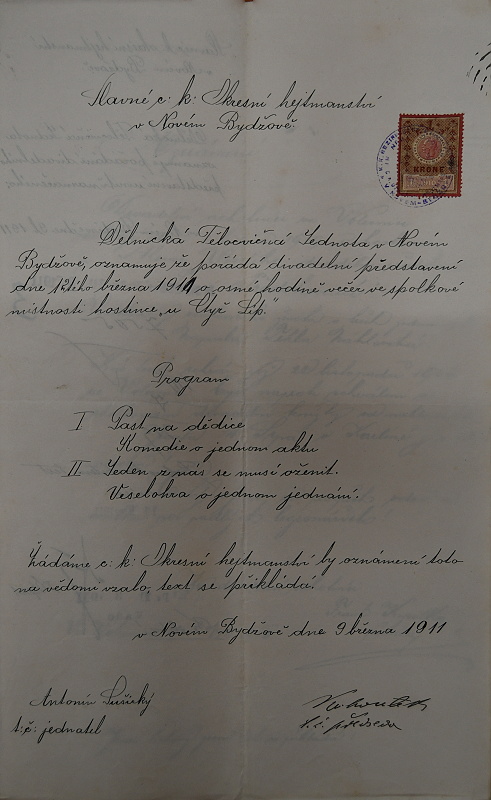 Slavné c: k: Okresní hejtmanství
v Novém Bydžově.
KRONE
Dělnická Tělocvičná Jednota v Novém
Bydžově, oznamuje že pořádá divadelní představení
dne 12tého března 1911 o osmé hodině večer ve spolkové
místnosti hostince „u Čtyř Lip."
Program
I Past' na dědice
Komedie o jednom aktu
II Jeden z nás se musí oženit.
Veselohra o jednom jednání.
Žádáme c: k: Okresní hejtmanství by oznámení toto
na vědomí vzalo, text se přikládá.
v Novém Bydžově dne 9 března 1911
Antonín
t: č: jednatel
t. č. předseda